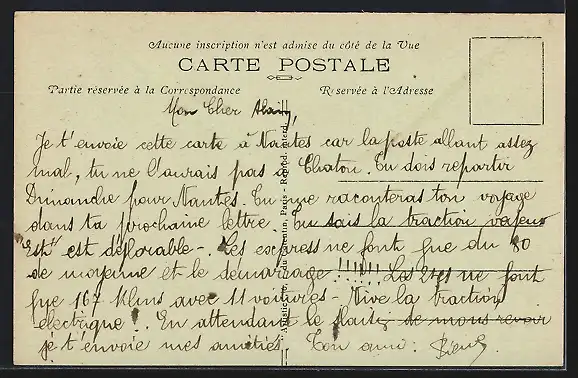 Aucune inscription n'est admise du côté de la Vue
CARTE POSTALE
Partie réservée à la Correspondance
Réservée à l'Adresse
Mon Cher Alain,
Je t'envoie cette carte à Nantes car la poste allant assez
mal, tu ne l'aurais pas à Chatou. Tu dois repartir
Dimanche pour Nantes. Tu me raconteras ton voyage
dans ta prochaine lettre. Tu sais la traction vapeur
Est est déplorable -. Les express ne font que du 80
de moyenne et le démarrage !!!!!! Les ne font
que 167 Klms avec 11 voitures - Vive la traction
électrique ! . En attendant le plaisir de nous revoir
je t'envoie mes amitiés. Ton ami :